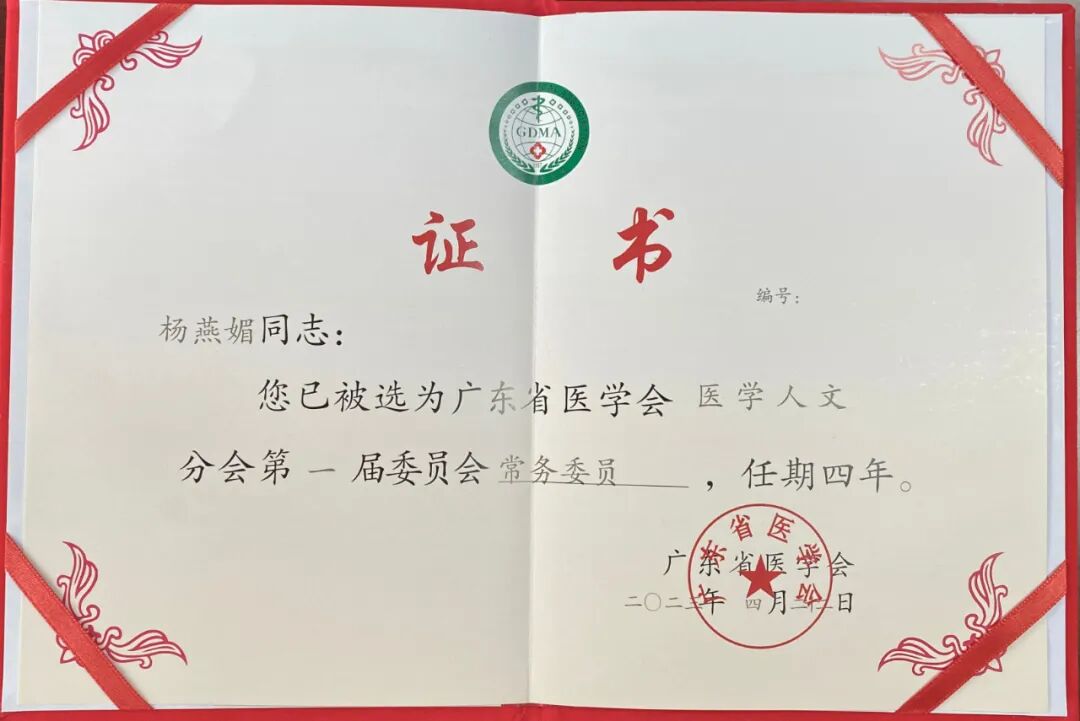 GDMA
证书
编号：
杨燕媚同志：
您已被选为广东省医学会 医学人文
分会第 一 届委员会常务委员，任期四年。
广东省医学会
二〇二三年 四月二十二日
广东省医学会